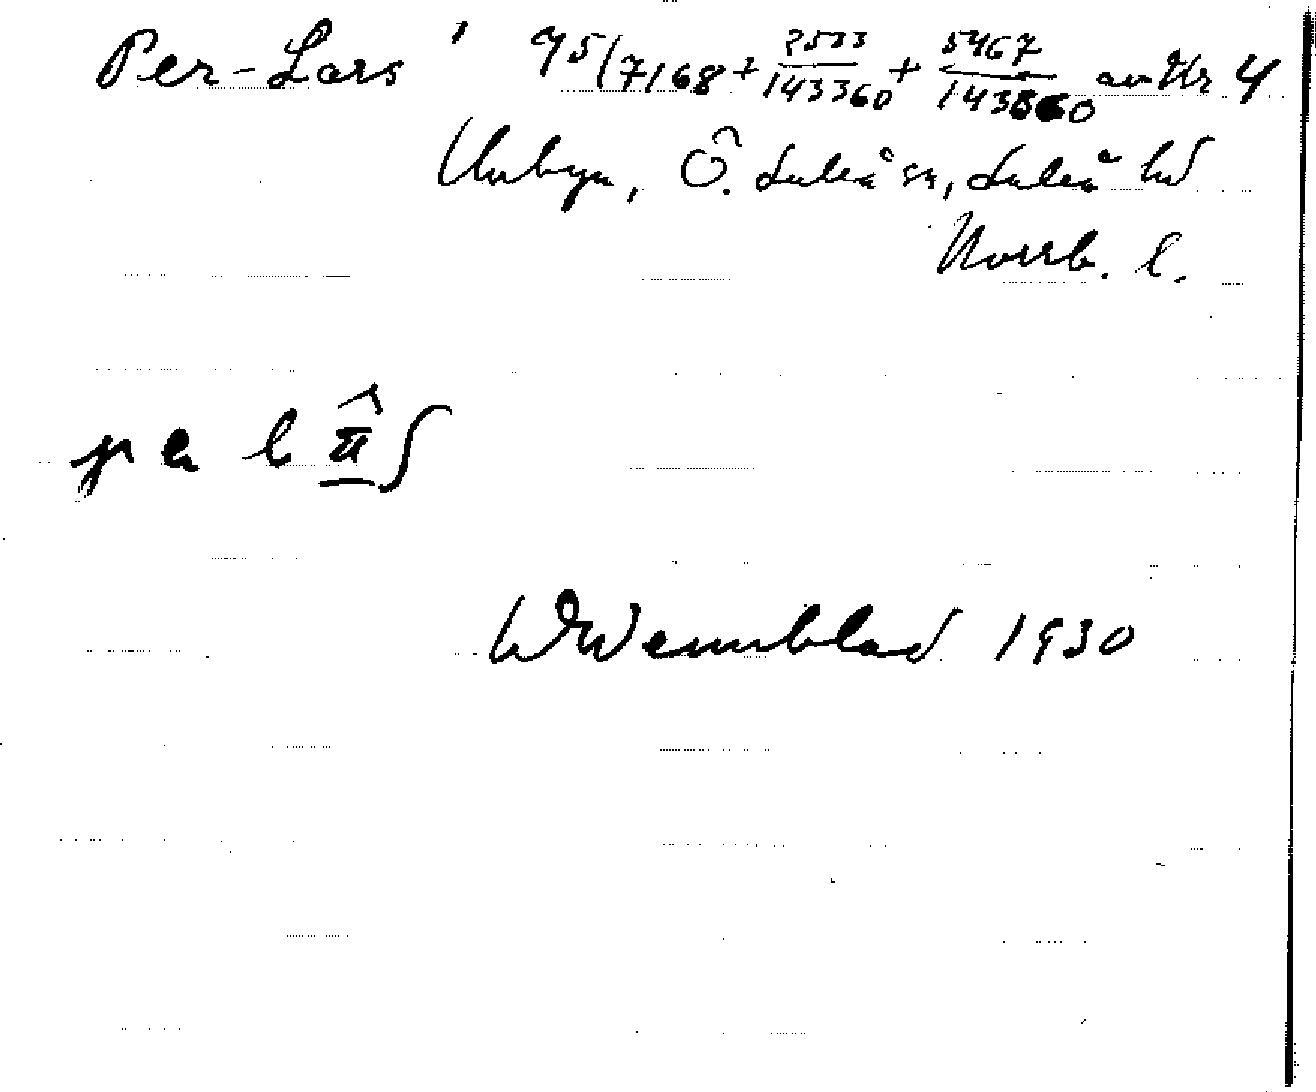 Per-Lars ' 95/7168 + 2533/143360 + 5467/143360 av Nr 4
Unbyn, Ö. Luleå sn, Luleå hd
Norrb. l.
W Wennblad 1930